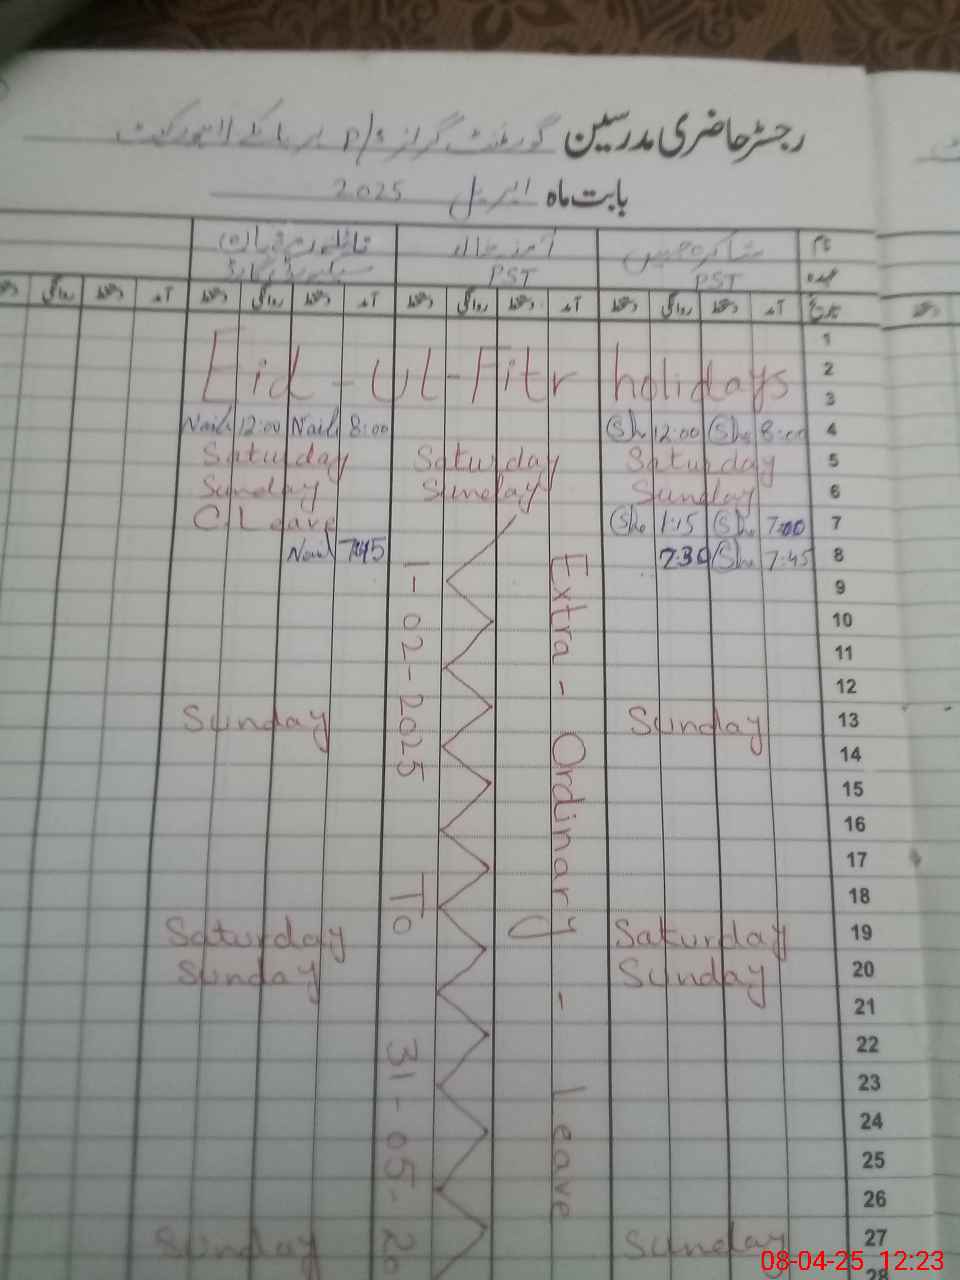 رجسٹر حاضری مدرسین گورنمنٹ گرلز p/s
بابت ماہ اپریل 2025
نام
عہدہ PST PST
تاریخ آمد دستخط روانگی دستخط آمد دستخط روانگی دستخط آمد دستخط روانگی دستخط آمد دستخط روانگی
1
Eid - Ul - Fitr holidays 2
3
Naila 12:00 Naila 8:00 She 12:00 She 8:00 4
Saturday Saturday Saturday 5
Sunday Sunday Sunday 6
C/Leave She 1:15 She 7:00 7
Nail 7:45 2:30 She 7:45 8
9
10
11
12
Sunday Sunday 13
14
15
16
17
18
Saturday Saturday 19
Sunday Sunday 20
21
22
23
24
25
26
Sunday Sunday 27
28
1-02-2025 To 31-05-20
Extra - Ordinary - leave
08-04-25 12:23